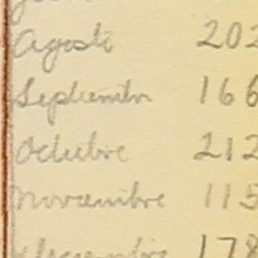 Agosto 202
Septiembre 166
Octubre 212
Noviembre 115
Diciembre 178